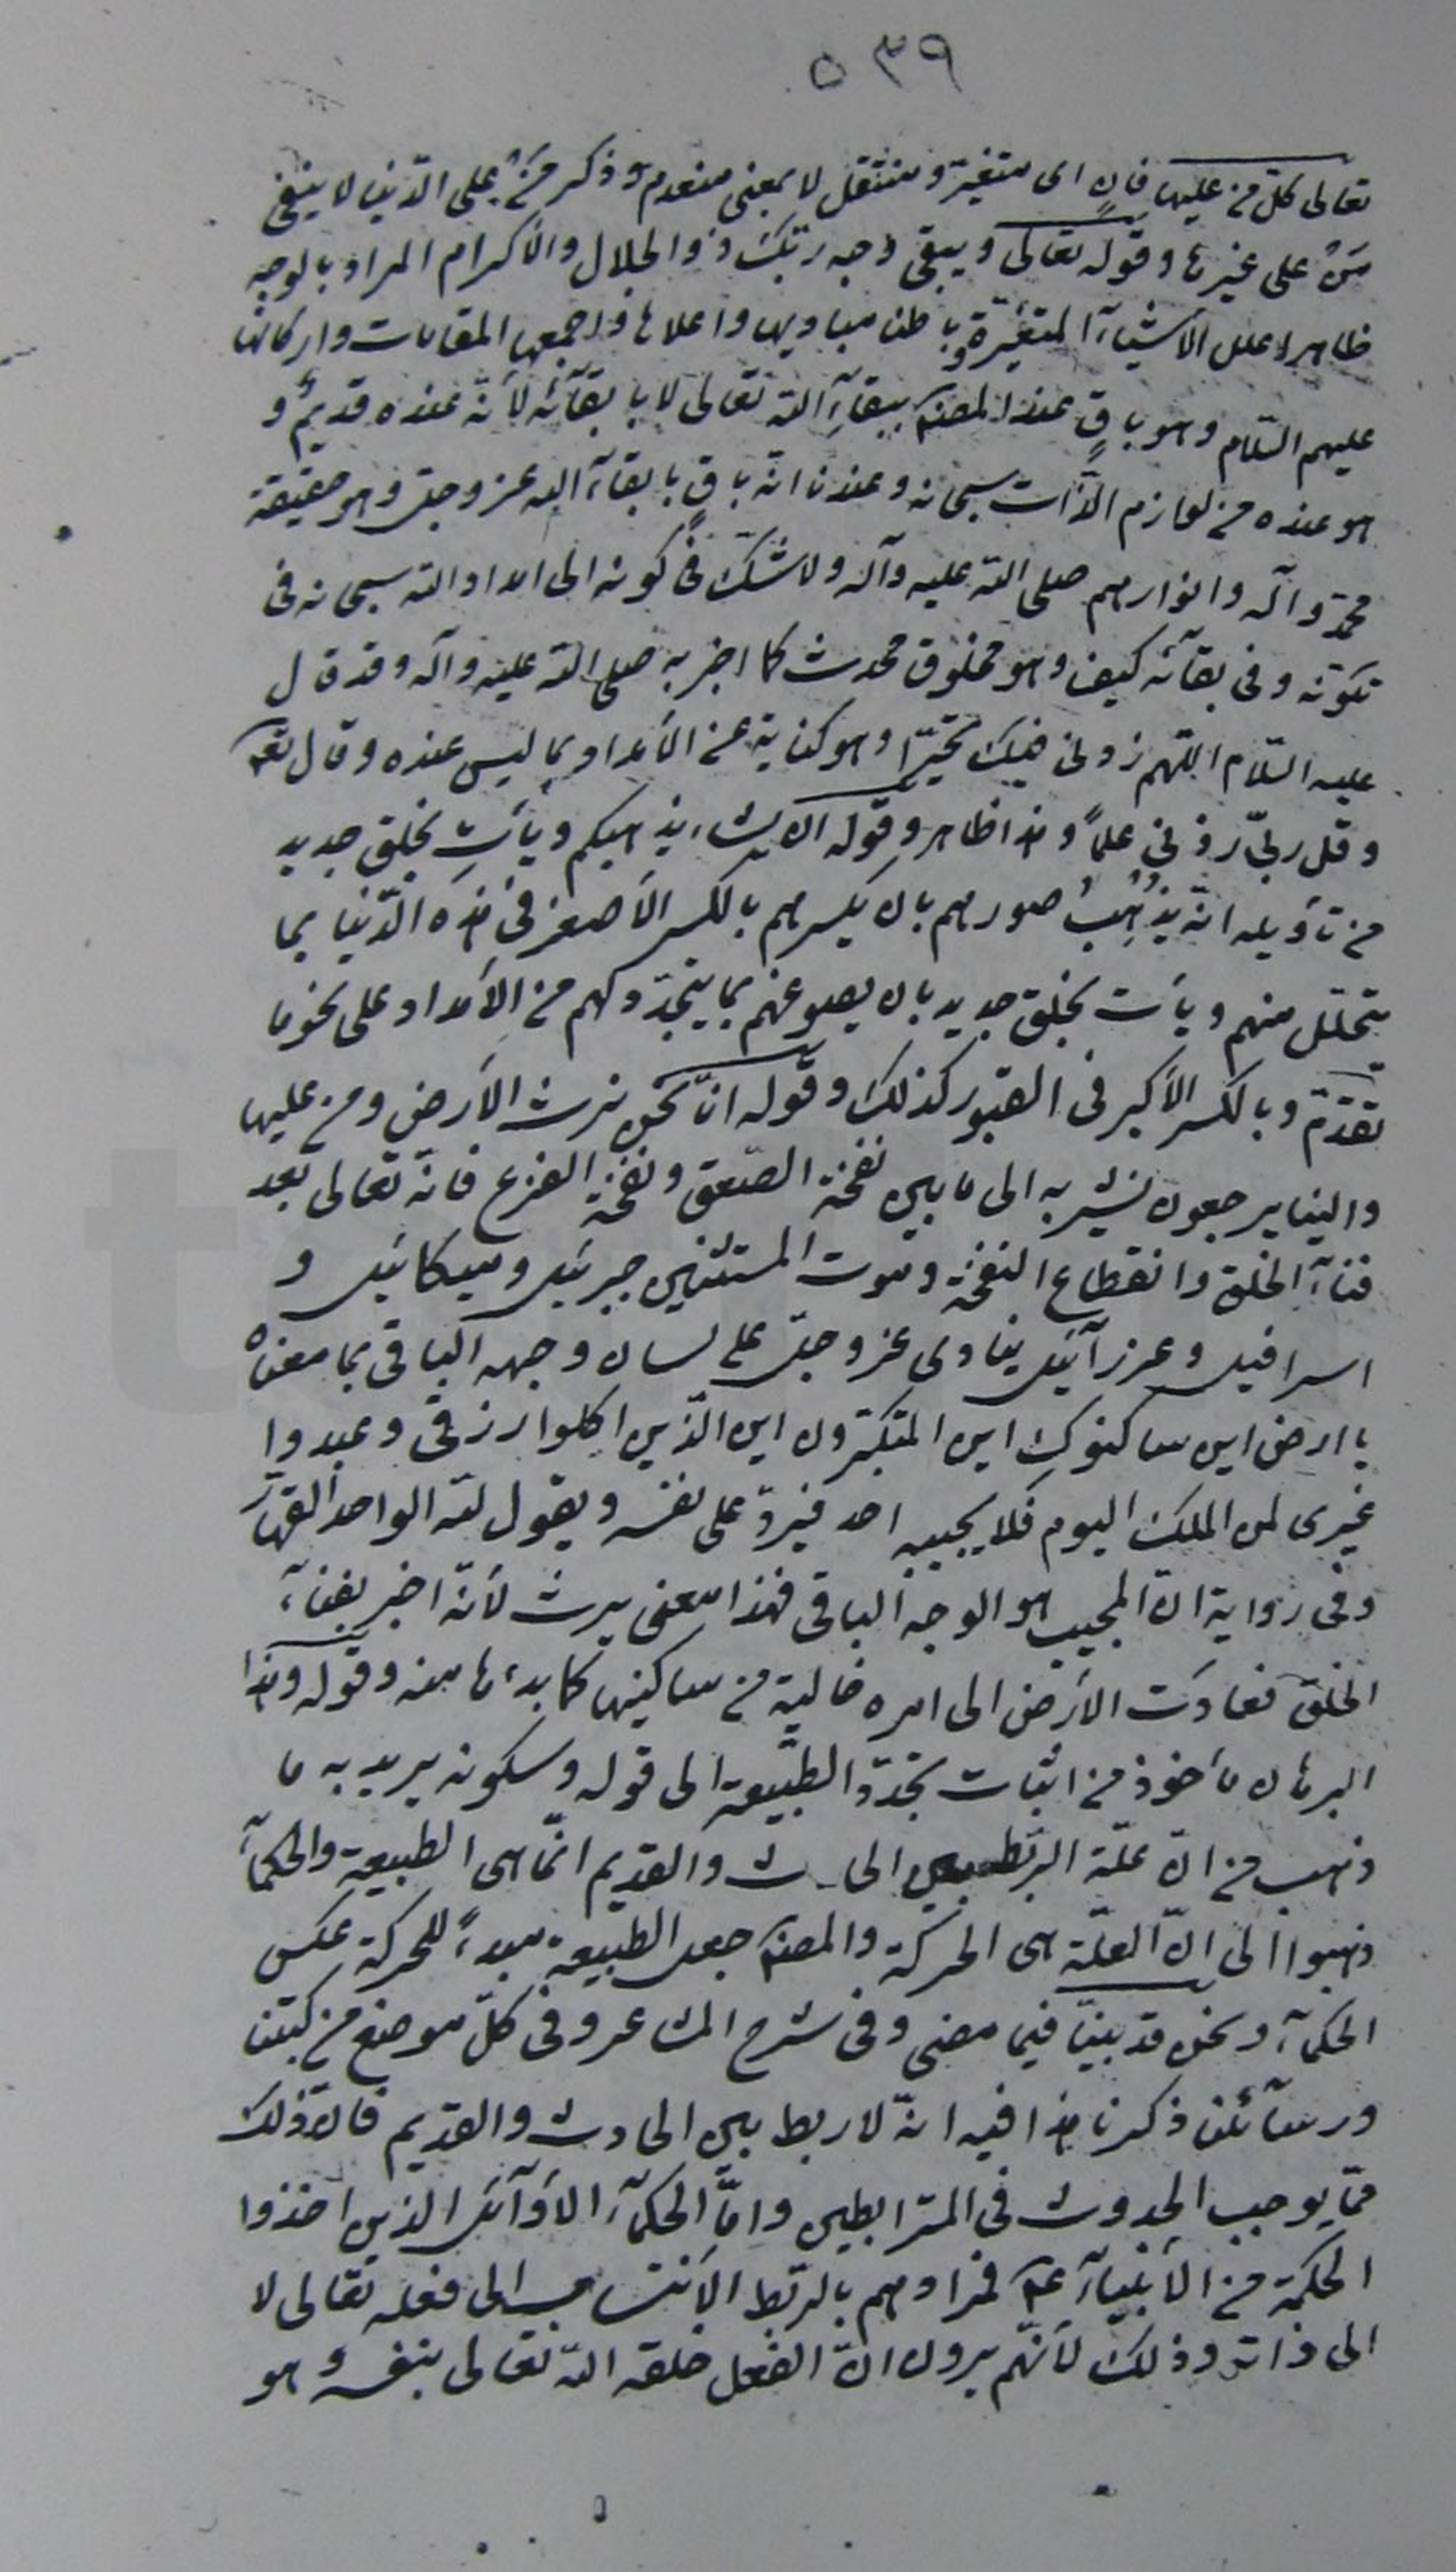 ٥٣٩
تعالى كلّ من عليها فانٍ اى متغيّر و منتقل لا بمعنى منعدم و ذكر مَنْ على الدّنيا لا ينفى
مَنْ على غيرها و قوله تعالى و يبقى وجه ربّك ذو الجلال و الأكرام المراد بالوجه
ظاهرا علل الأشيآء المتغيّرة و باطنا مباديها و اعلاها و اجمعها المقامات و اركانها
عليهم السّلام و هو باقٍ عند المصنّف ببقآءِ الله تعالى لا بابقآئه لأنّه عنده قديم و
هو عنده من لوازم الذّات سبحانه و عندنا انّه باقٍ بابقآء الله عزّ و جلّ و هو حقيقة
محمّد و آله و انوارهم صلى الله عليه و آله و لا شكّ فى كونه الى امداد الله سبحانه فى
تكوّنه و فى بقآئه كيف و هو مخلوق محدث كما اخبر به صلى الله عليه و آله و قد قال
عليه السّلام اللّهم زدنى فيك تحيّرا و هو كناية عن الأمداد بما ليس عنده و قال تعالى
و قل ربّ زدنى علماً و هذا ظاهر و قوله ان يشاء يذهبكم و يأتِ بخلق جديد
من تأويله انّه يُذْهِبُ صورهم بان يكسرهم بالكسر الأصغر فى هذه الدّنيا بما
يتحلّل منهم و يأت بخلق جديد بان يصوغهم بما يتجدّد لهم من الأمداد على نحو ما
تقدّم و بالكسر الأكبر فى القبور كذلك و قوله انّا نحن نرث الأرض و من عليها
و الينا يرجعون يشير به الى ما بين نفخة الصّعق و نفخة الفزع فانّه تعالى بعد
فنآء الخلق و انقطاع النفخة و موت المستثنين جبرئيل و ميكائيل و
اسرافيل و عزرآئيل ينادى عزّ و جلّ على لسان وجهه الباقى بما معناه
يا ارض اين ساكنوكِ اين المتكبّرون اين الّذين اكلوا رزقى و عبدوا
غيرى لمن الملك اليوم فلا يجيبه احد فيردّ على نفسه و يقول لله الواحد القهّار
و فى رواية انّ المجيب هو الوجه الباقى فهذا معنى يرث لأنّه اخبر بفنآء
الخلق فعادت الأرض الى امره خالية من ساكنيها كما بدءها منه و قوله و هذا
البرهان مأخوذ من اثبات تجدّد الطّبيعة الى قوله و سكونه يريد به ما
ذهب من انّ علّة الربط بين الحادث و القديم انّما هى الطبيعة و الحكمآء
ذهبوا الى انّ العلّة هى الحركة و المصنّف جعل الطبيعة مبدءً للحركة عكس
الحكمآء و نحن قد بيّنّا فيما مضى و فى شرح المشاعر و فى كلّ موضع من كتبنا
و رسآئلنا ذكرنا هذا فيه انّه لا ربط بين الحادث و القديم فانّ ذلك
ممّا يوجب الحدوث فى المترابطين و امّا الحكمآء الأوآئل الذين اخذوا
الحكمة من الأنبيآء ع فمرادهم بالرّبط الأنتساب الى فعله تعالى لا
الى ذاته و ذلك لأنّهم يرون انّ الفعل خلقه الله تعالى بنفسه و هو